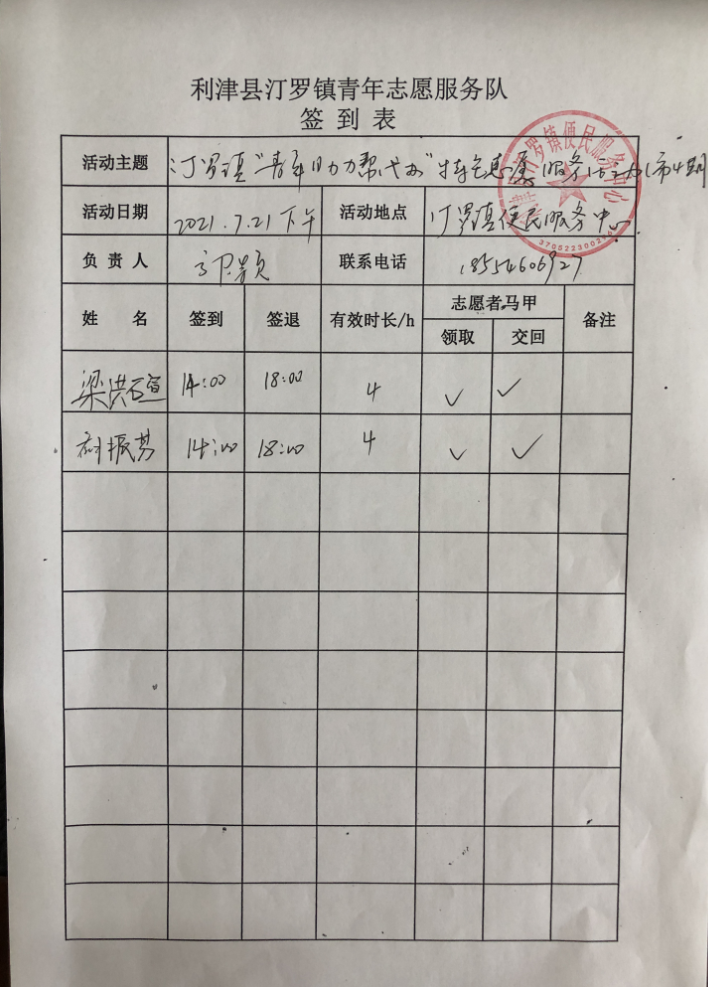 利津县汀罗镇青年志愿服务队
签到表
活动主题 汀罗镇"青年助力帮代办"志愿服务活动(第4期
活动日期 2021.7.21下午 活动地点 汀罗镇便民服务中心
负责人 联系电话 18554606927
姓名 签到 签退 有效时长/h 志愿者马甲 备注
领取 交回
梁洪 14:00 18:00 4 ✓ ✓
振芳 14:00 18:00 4 ✓ ✓
罗镇便民服务中心